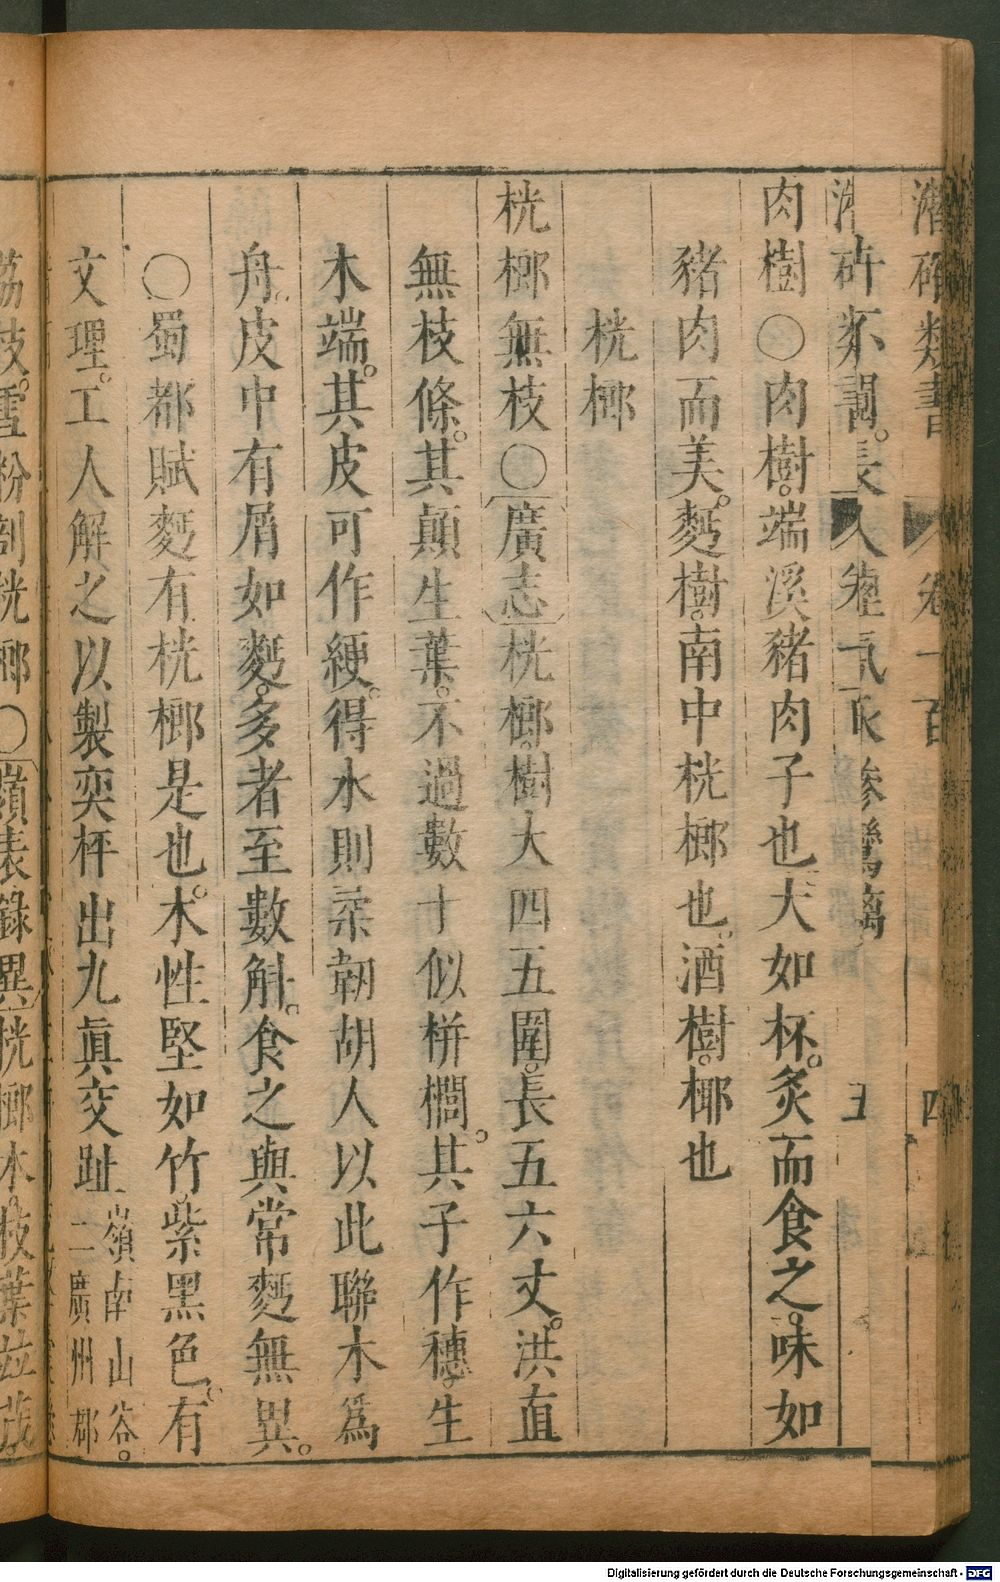 潛確類書
卷一百
四
肉樹〇肉樹端溪豬肉子也大如杯炙而食之味如
豬肉而美麪樹南中桄榔也酒樹椰也
桄榔
桄榔無枝〇廣志桄榔樹大四五圍長五六丈洪直
無枝條其顛生葉不過數十似栟櫚其子作穗生
木端其皮可作綆得水則柔韌胡人以此聯木為
舟皮中有屑如麪多者至數斛食之與常麪無異
〇蜀都賦麪有桄榔是也木性堅如竹紫黑色有
文理工人解之以製奕枰出九眞交趾嶺南山谷
二廣州郡
荔枝雪粉剖桄榔〇嶺表錄異桄榔木枝葉並蕃
Digitalisierung gefördert durch die Deutsche Forschungsgemeinschaft - DFG